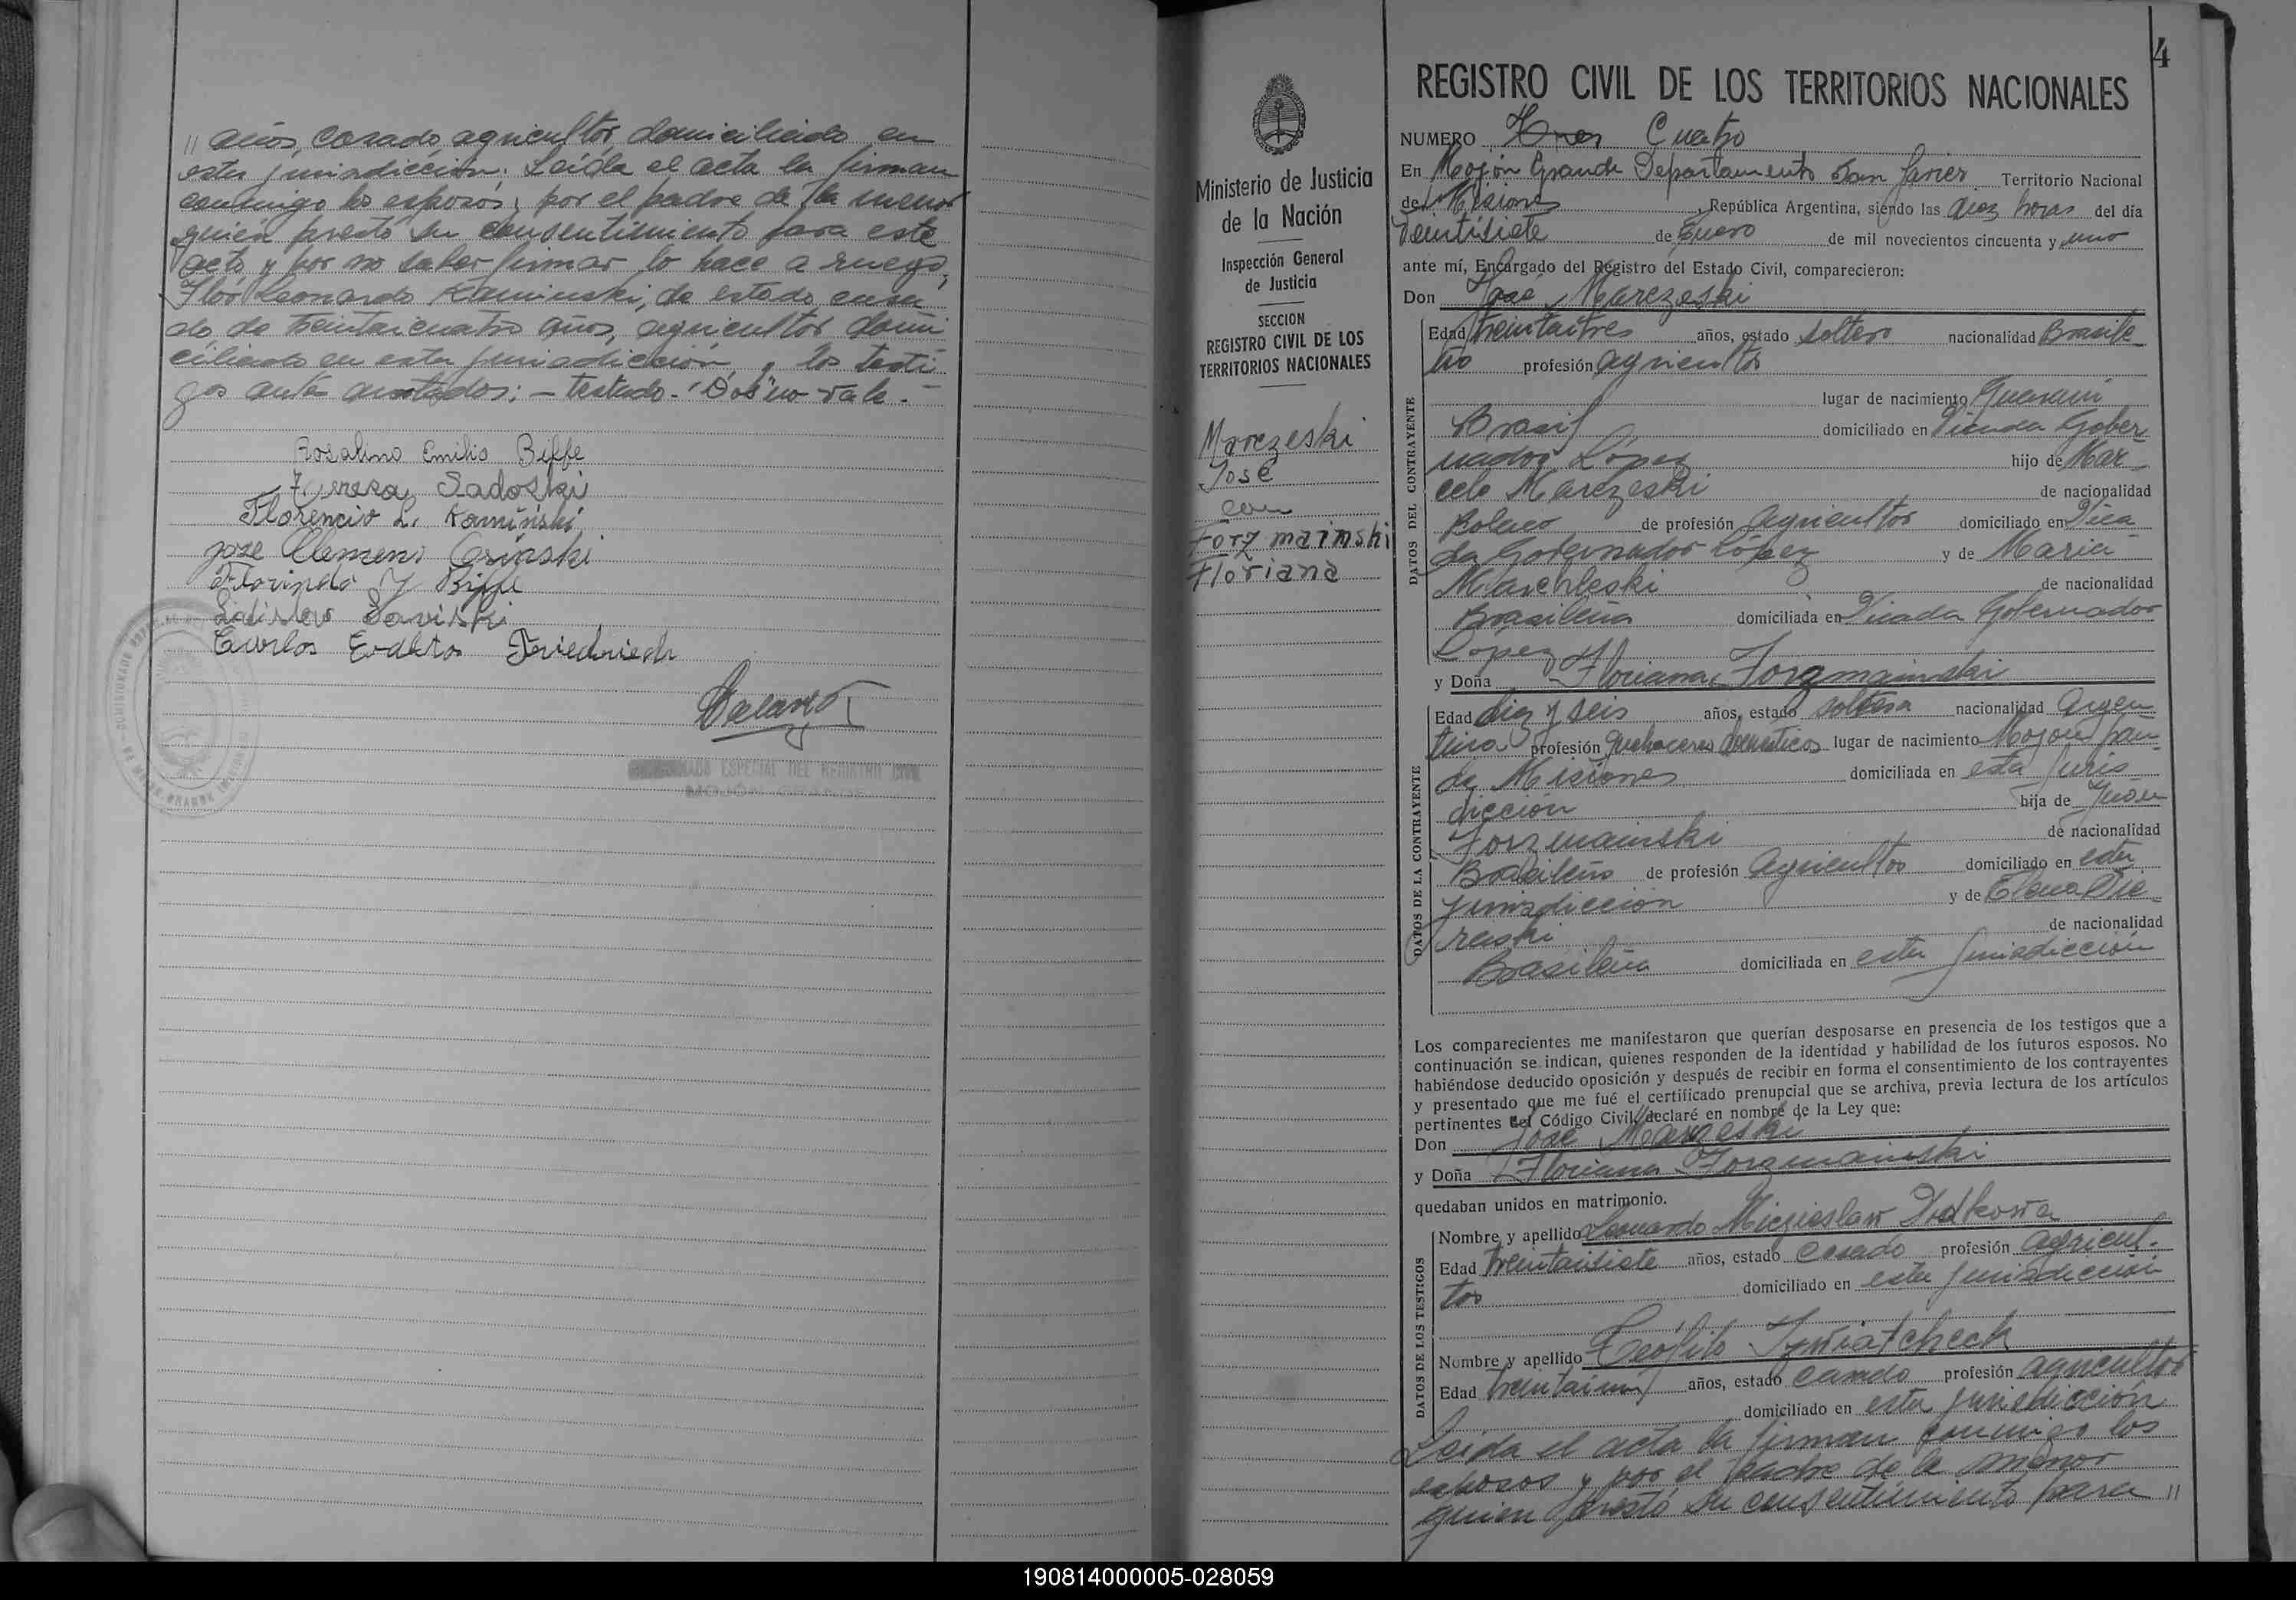 // años, casado, agricultor, domiciliado en
esta jurisdicción. Leída el acta la firman
conmigo los esposos, por el padre de la menor
quien prestó su consentimiento para este
acto y por no saber firmar lo hace a ruego,
Leonardo Kaminski, de estado casa
do de treintaicuatro años, agricultor domi
ciliado en esta jurisdicción y los testi
gos antes anotados: - testado - "Dos" no vale. -
Rosalino Emilio Biffe
Teresa Sadoski
Florencio L. Kamiński
Jose Clemens Osinski
Florindo J Biffe
Ladislao Saviski
Carlos Evaldo Friedrich
ENCARGADO ESPECIAL DEL REGISTRO CIVIL
MOJÓN GRANDE
4
Ministerio de Justicia
de la Nación
Inspección General
de Justicia
SECCION
REGISTRO CIVIL DE LOS
TERRITORIOS NACIONALES
Marczeski
José
con
Forzmainski
Floriana
REGISTRO CIVIL DE LOS TERRITORIOS NACIONALES
NUMERO Tres Cuatro
En Mojón Grande Departamento San Javier Territorio Nacional
de Misiones, República Argentina, siendo las diez horas del día
Veintisiete de Enero de mil novecientos cincuenta y uno
ante mí, Encargado del Registro del Estado Civil, comparecieron:
Don José Marczeski
DATOS DEL CONTRAYENTE
Edad treintaitres años, estado soltero nacionalidad Brasile
ño profesión agricultor
lugar de nacimiento Guarani
Brasil domiciliado en Picada Gober
nador López hijo de Mar
celo Marczeski de nacionalidad
Polaco de profesión Agricultor domiciliado en Pica
da Gobernador López y de Maria
Marchleski de nacionalidad
Brasileña domiciliada en Picada Gobernador
López
y Doña Floriana Forzmainski
DATOS DE LA CONTRAYENTE
Edad diez y seis años, estado soltera nacionalidad Argen
tina profesión Quehaceres domésticos lugar de nacimiento Mojón Gran
de Misiones domiciliada en esta juris
dicción hija de Juan
Forzmainski de nacionalidad
Brasileño de profesión Agricultor domiciliado en esta
jurisdicción y de Elena Pie
reski de nacionalidad
Brasileña domiciliada en esta jurisdicción
Los comparecientes me manifestaron que querían desposarse en presencia de los testigos que a
continuación se indican, quienes responden de la identidad y habilidad de los futuros esposos. No
habiéndose deducido oposición y después de recibir en forma el consentimiento de los contrayentes
y presentado que me fué el certificado prenupcial que se archiva, previa lectura de los artículos
pertinentes del Código Civil, declaré en nombre de la Ley que:
Don José Marzeski
y Doña Floriana Forzmainski
quedaban unidos en matrimonio.
DATOS DE LOS TESTIGOS
Nombre y apellido Leonardo Miezieslaw
Edad treintaisiete años, estado casado profesión agricul-
tor domiciliado en esta jurisdicción
Nombre y apellido Teófilo Iwiatcheck
Edad treintaiun años, estado casado profesión agricultor
domiciliado en esta jurisdicción
Leída el acta la firman conmigo los
esposos y por el padre de la menor
quien prestó su consentimiento para //
190814000005-028059